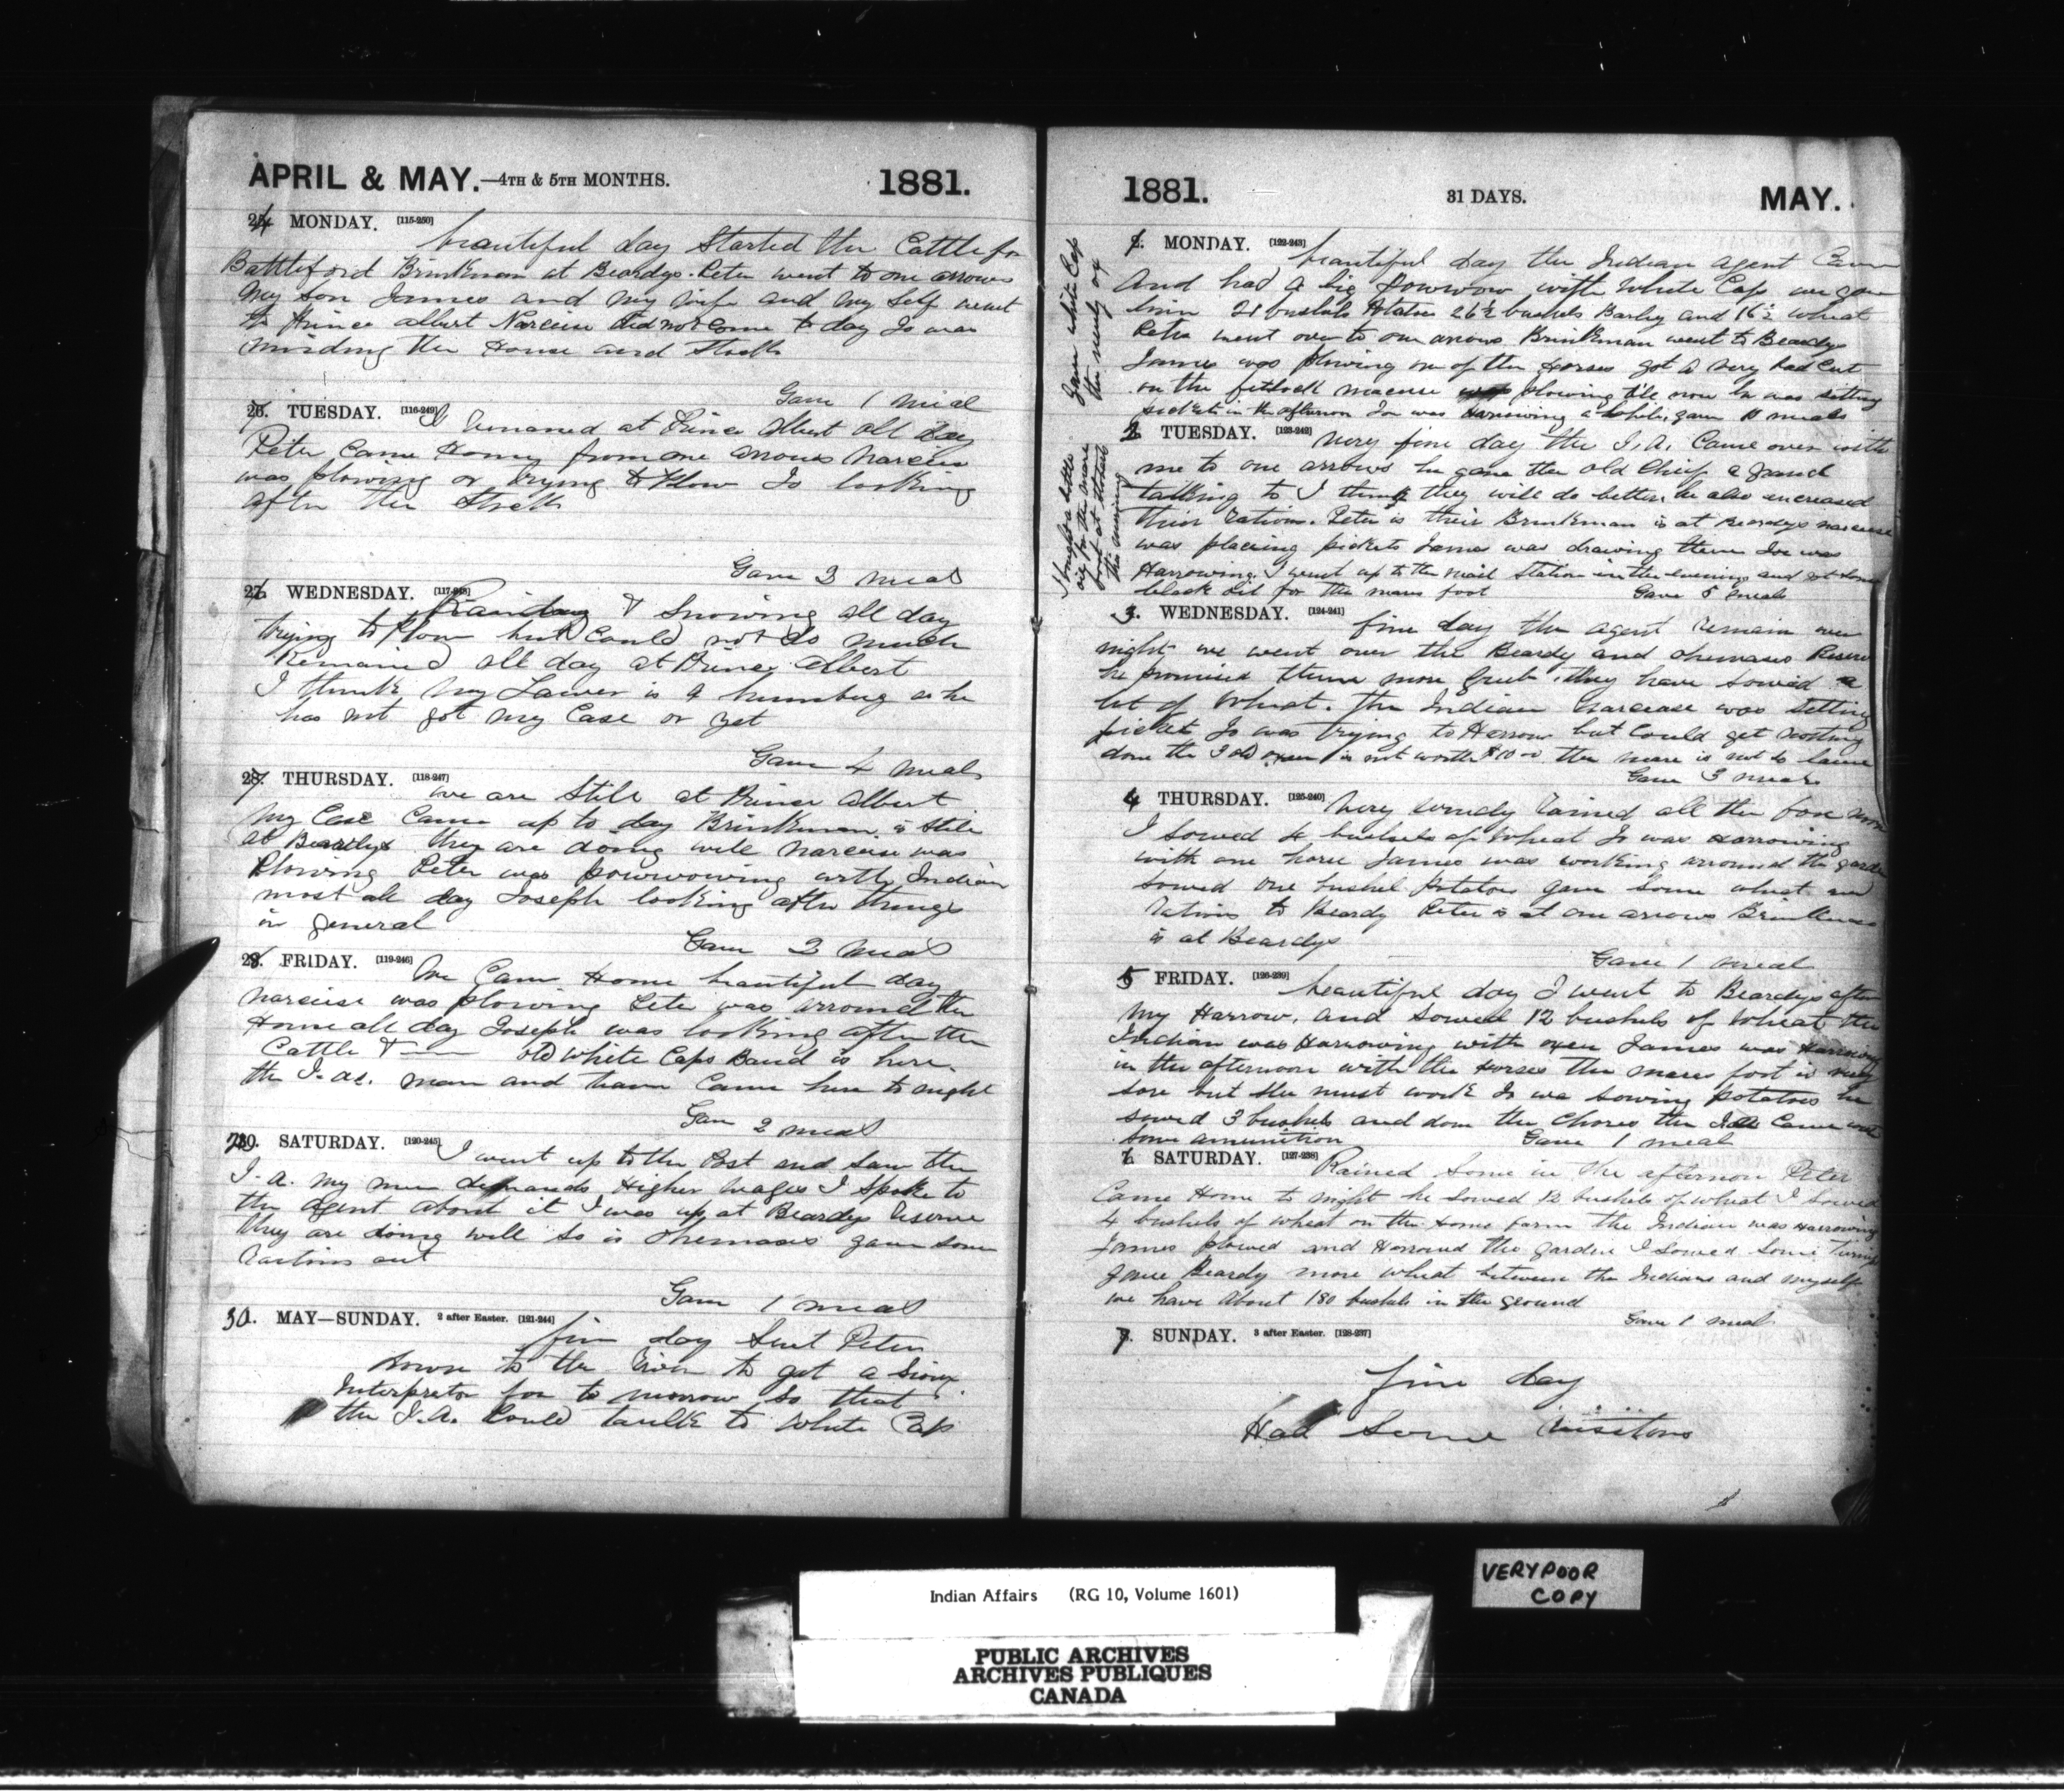 APRIL & MAY.—4TH & 5TH MONTHS. 1881.
MONDAY. [115-250] beautiful day Started the Cattle for
Battleford Brinkman at Beardys. Peter went to one arrows
My son James and my wife and my self went
to Prince albert Narcisse did not come to day Jo was
minding the House and Stock
Gave 1 meal
TUESDAY. [116-249] I remained at Prince Albert all day
Peter Came Home from one arrows Narcisse
was plowing or trying to Plow Jo looking
after the Stock
Gave 3 meal
WEDNESDAY. [117-248] Raining & Snowing all day
trying to Plow but Could not do much
Remained all day at Prince albert
I think my Lawer is a humbug as he
has not got my Case on yet
Gave 4 meals
THURSDAY. [118-247] we are Still at Prince albert
My Case Came up to day Brinkman is still
at Beardys they are doing well Narcisse was
Plowing Peter was powwowing with Indian
most all day Joseph looking after things
in general
Gave 3 meal
FRIDAY. [119-246] We Came Home beautiful day
Narcisse was plowing Peter was arround the
Home all day Joseph was looking after the
Cattle & old White Caps Band is here
the I.A. man and team Came here to night
Gave 2 meal
SATURDAY. [120-245] I went up to the Post and Saw the
I.A. My men demands Higher wages I Spoke to
the Agent about it I was up at Beardys reserve
they are doing well So is Okemasis gave some
rations out
Gave 1 meal
30. MAY—SUNDAY. 2 after Easter. [121-244] fine day Sent Peter
down to the river to get a Sioux
Interpreter for to morrow so that
the I.A. Could taulk to White Cap
1881. 31 DAYS. MAY.
Gave White Cap
I bought a bottle
oil for the mare
foot at
MONDAY. [122-243] beautiful day the Indian agent Came
And had a big Powwow with White Cap we gave
him 21 bushels Potatoes 26½ bushels Barley and 16½ wheat
Peter went over to one arrows Brinkman went to Beardys
James was plowing one of the Horses got a very bad Cut
on the fetlock plowing till now he was setting
pickets in the afternoon Joe was Harrowing a while, gave 11 meals
2 TUESDAY. [123-242] Very fine day the I.A. Came over with
me to one arrows he gave the old Chief a grand
talking to I think they will do better he also increased
their rations. Peter is their Brinkman is at Beardys Narcisse
was placing pickets James was drawing them Joe was
Harrowing. I went up to the mail Station in the evening and got some
black oil for the mares foot Gave 8 meals
3. WEDNESDAY. [124-241] fine day the agent remain over
night we went over the Beardy and okemasis Reserve
he promised them more Grub. they have sowed a
lot of Wheat. the Indian Narcisse was setting
pickets Jo was trying to Harrow but Could get nothing
done the 3 old oxen is not worth $10 the mare is not so lame
Gave 3 meals
4 THURSDAY. [125-240] Very windy rained all the fore noon
I sowed 4 bushels of Wheat Jo was Harrowing
with one horse James was working arround the garden
sowed one bushel Potatoes gave some wheat and
rations to Beardy Peter is at one arrows Brinkman
is at Beardys
Gave 1 meal
5 FRIDAY. [126-239] beautiful day I went to Beardys after
My Harrow, and Sowed 12 bushels of Wheat the
Indian was Harrowing with oxen James was Harrowing
in the afternoon with the Horses the mares foot is very
sore but she must work Jo was sowing potatoes he
sowed 3 bushels and done the Chores the I.A. Came with
some amunition Gave 1 meal
SATURDAY. [127-238] Rained Some in the afternoon Peter
Came Home to night he Sowed 12 bushels of wheat I Sowed
4 bushels of wheat on the Home Farm the Indian was Harrowing
James plowed and Harrowed the garden I sowed Some
Gave Beardy more wheat between the Indians and myself
we have About 180 bushels in the ground
Gave 1 meal
SUNDAY. 3 after Easter. [128-237]
fine day
Had Some visitors
VERY POOR
COPY
Indian Affairs (RG 10, Volume 1601)
PUBLIC ARCHIVES
ARCHIVES PUBLIQUES
CANADA